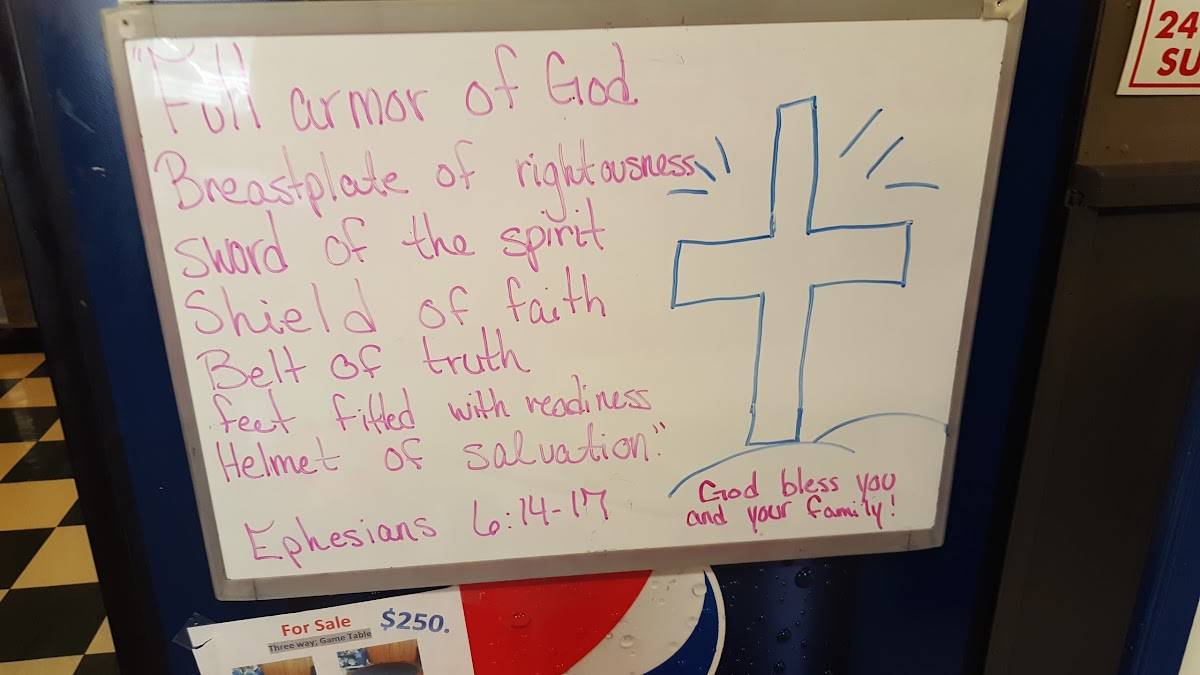 "Full armor of God
Breastplate of rightousness
Sword of the spirit
Shield of faith
Belt of truth
feet fitted with readiness
Helmet of salvation."
Ephesians 6:14-17
God bless you
and your family!
24
SU
For Sale $250.
Three way; Game Table